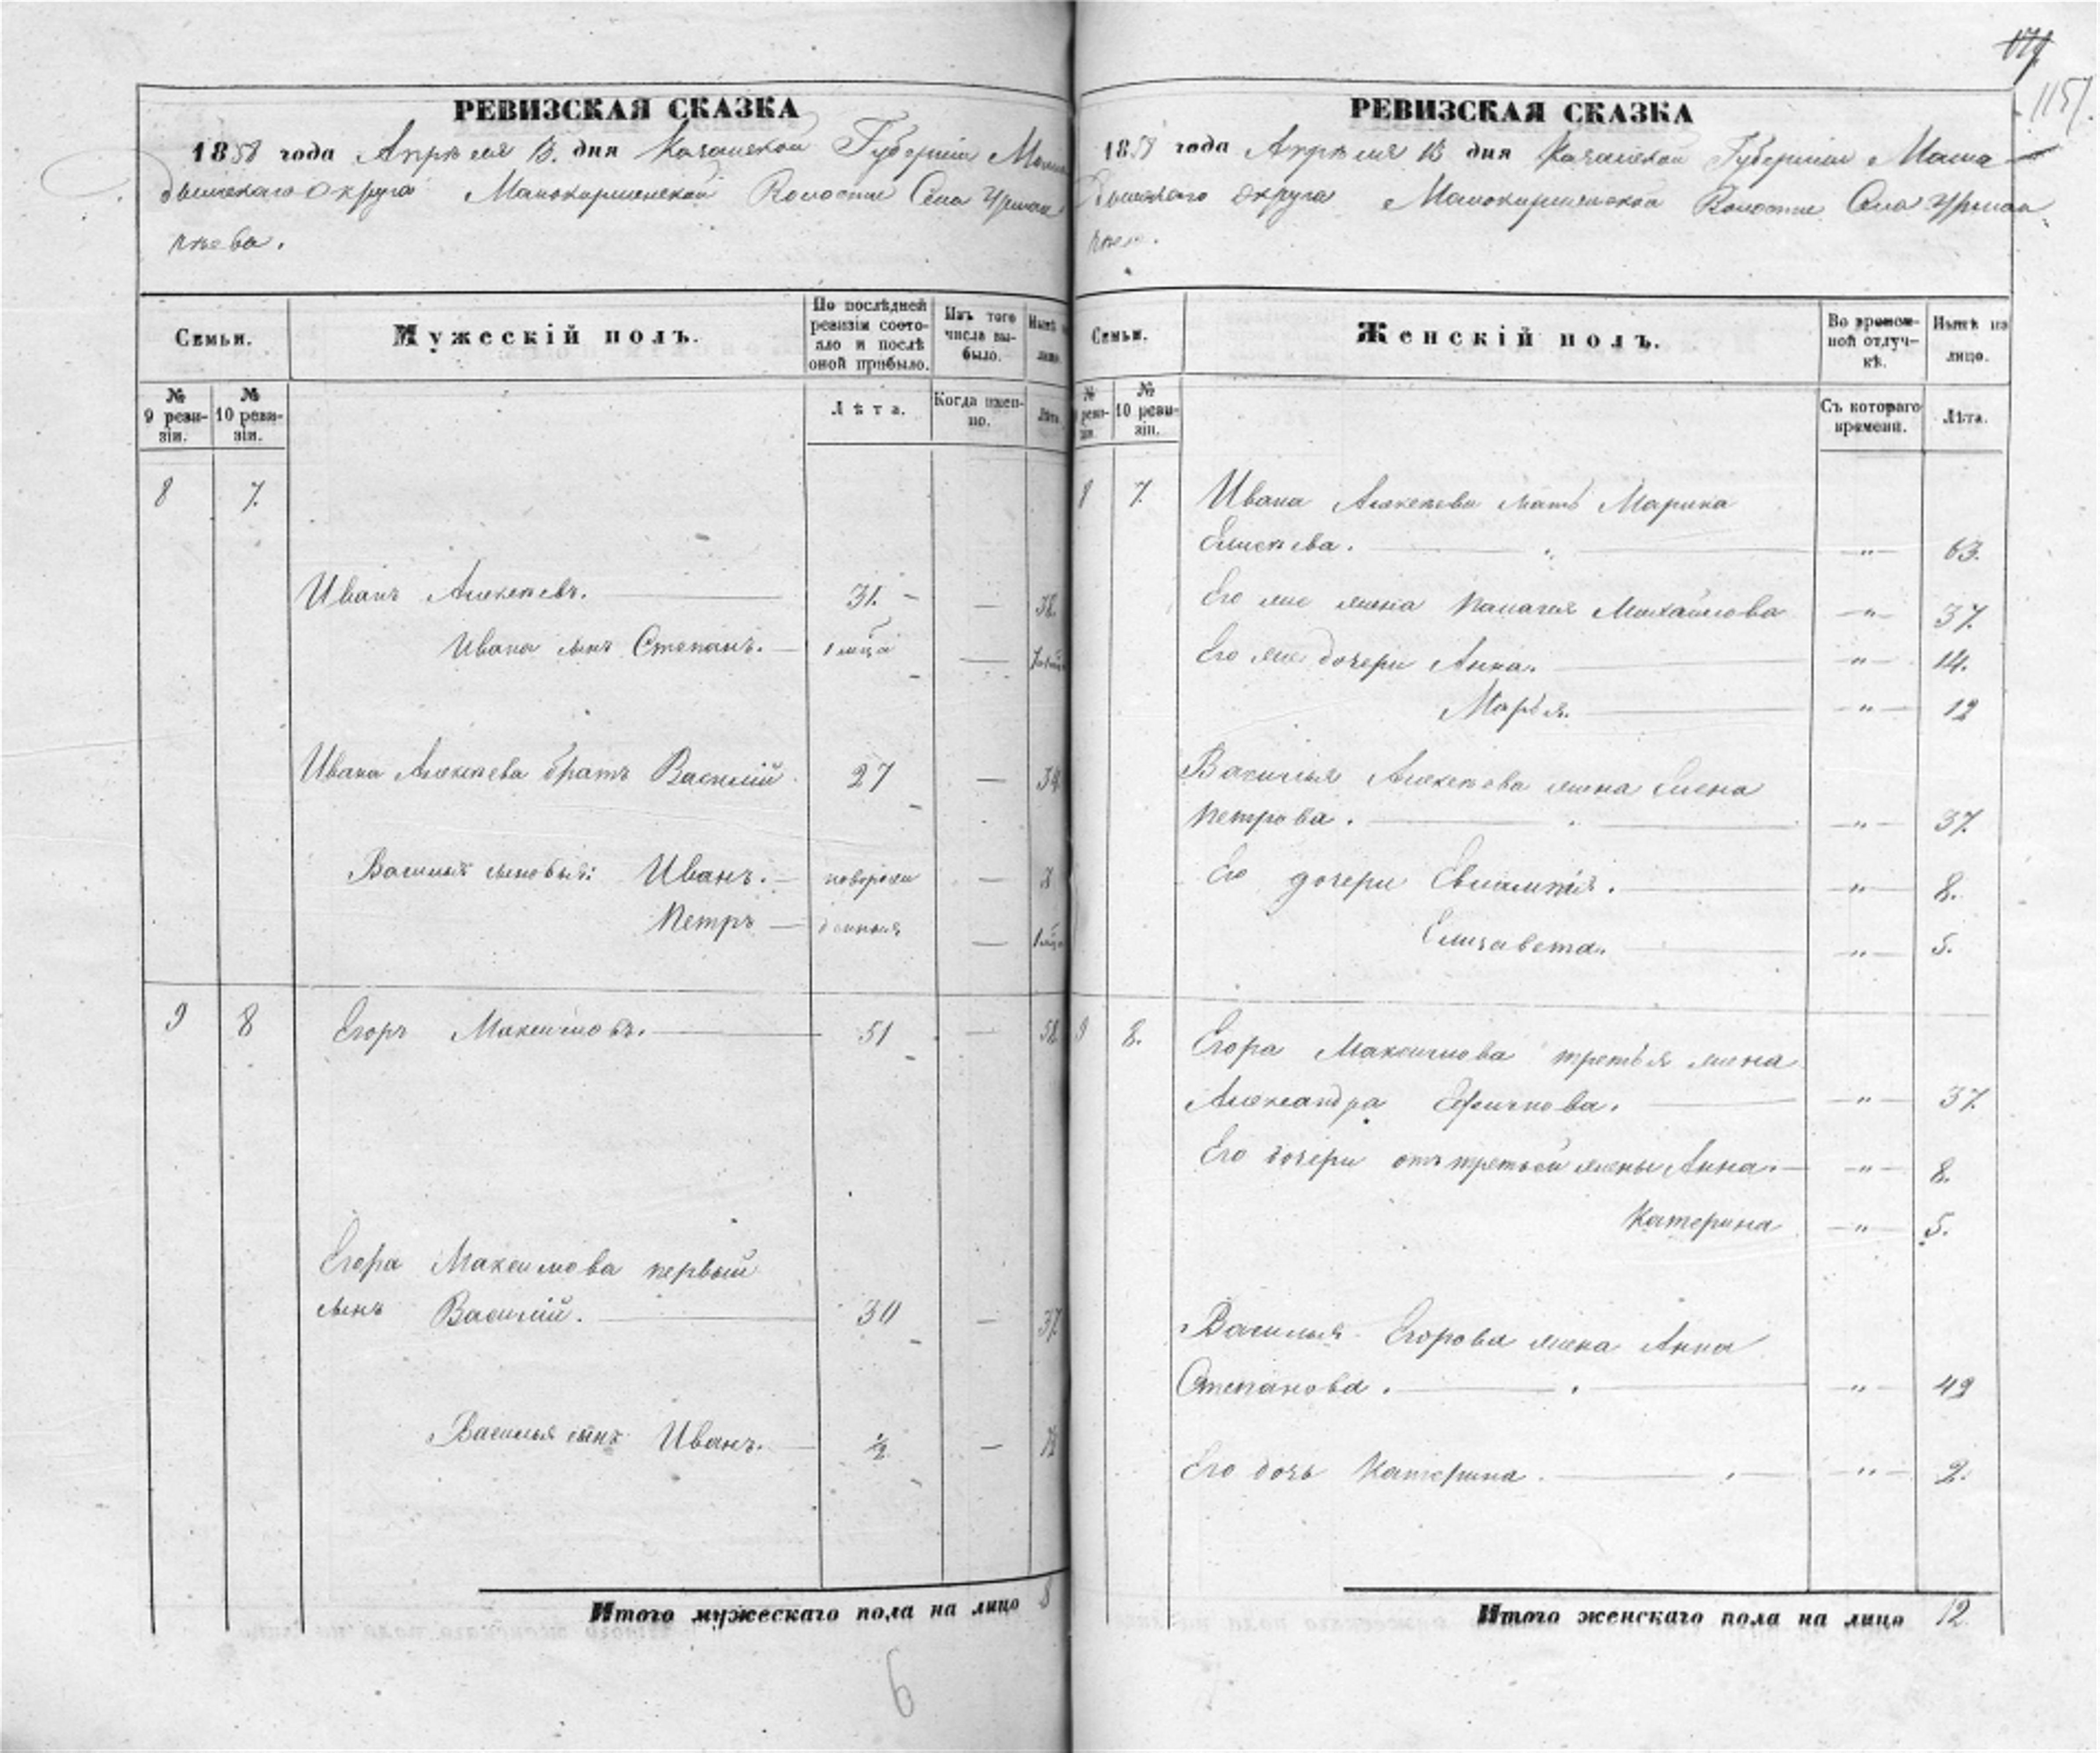 РЕВИЗСКАЯ СКАЗКА
1858 года Апрѣля 13. дня Казанской Губерніи Мама
дышскаго Округа Малокирменской Волости Села Урман
чѣева.
Семьи.
Мужескій полъ.
По послѣдней ревизіи состояло и послѣ оной прибыло.
Изъ того числа выбыло.
Нынѣ на лицо.
№ 9 ревизіи.
№ 10 ревизіи.
Лѣта.
Когда именно.
Лѣта.
8 7.
Иванъ Алексѣевъ. 31. — 38.
Ивана сынъ Степанъ. 1 мѣца —
Ивана Алексѣева братъ Василій 27 — 34
Василья сыновья: Иванъ. новорож —
Петръ — денныя —
9 8 Егоръ Максимовъ. 51 — 58
Егора Максимова первый
сынъ Василій. 30 — 37.
Василья сынъ Иванъ. ½ —
Итого мужескаго пола на лицо 8
6
1157.
РЕВИЗСКАЯ СКАЗКА
1858 года Апрѣля 13 дня Казанской Губерніи Мама
дышскаго Округа Малокирменской Волости Села Урман
Семьи.
Женскій полъ.
Во временной отлучкѣ.
Нынѣ на лицо.
№ 9 ревизіи.
№ 10 ревизіи.
Съ котораго времени.
Лѣта.
8 7. Ивана Алексѣева мать Марина
Елисѣева. — „ — 63.
Его же жена Палагея Михайлова — „ — 37.
Его же дочери Анна. — „ — 14.
Марья. — „ — 12
Василья Алексѣева жена Елена
Петрова. — „ — 37.
Его дочери — „ — 8.
Елизавета. — „ — 5.
9 8. Егора Максимова третья жена
Александра Ефимова. — „ — 37.
Его дочери отъ третьей жены Анна. — „ — 8.
Катерина — „ — 5.
Василья Егорова жена Анна
Степанова. — „ — 42
Его дочь Катерина. — „ — 2.
Итого женскаго пола на лицо 12